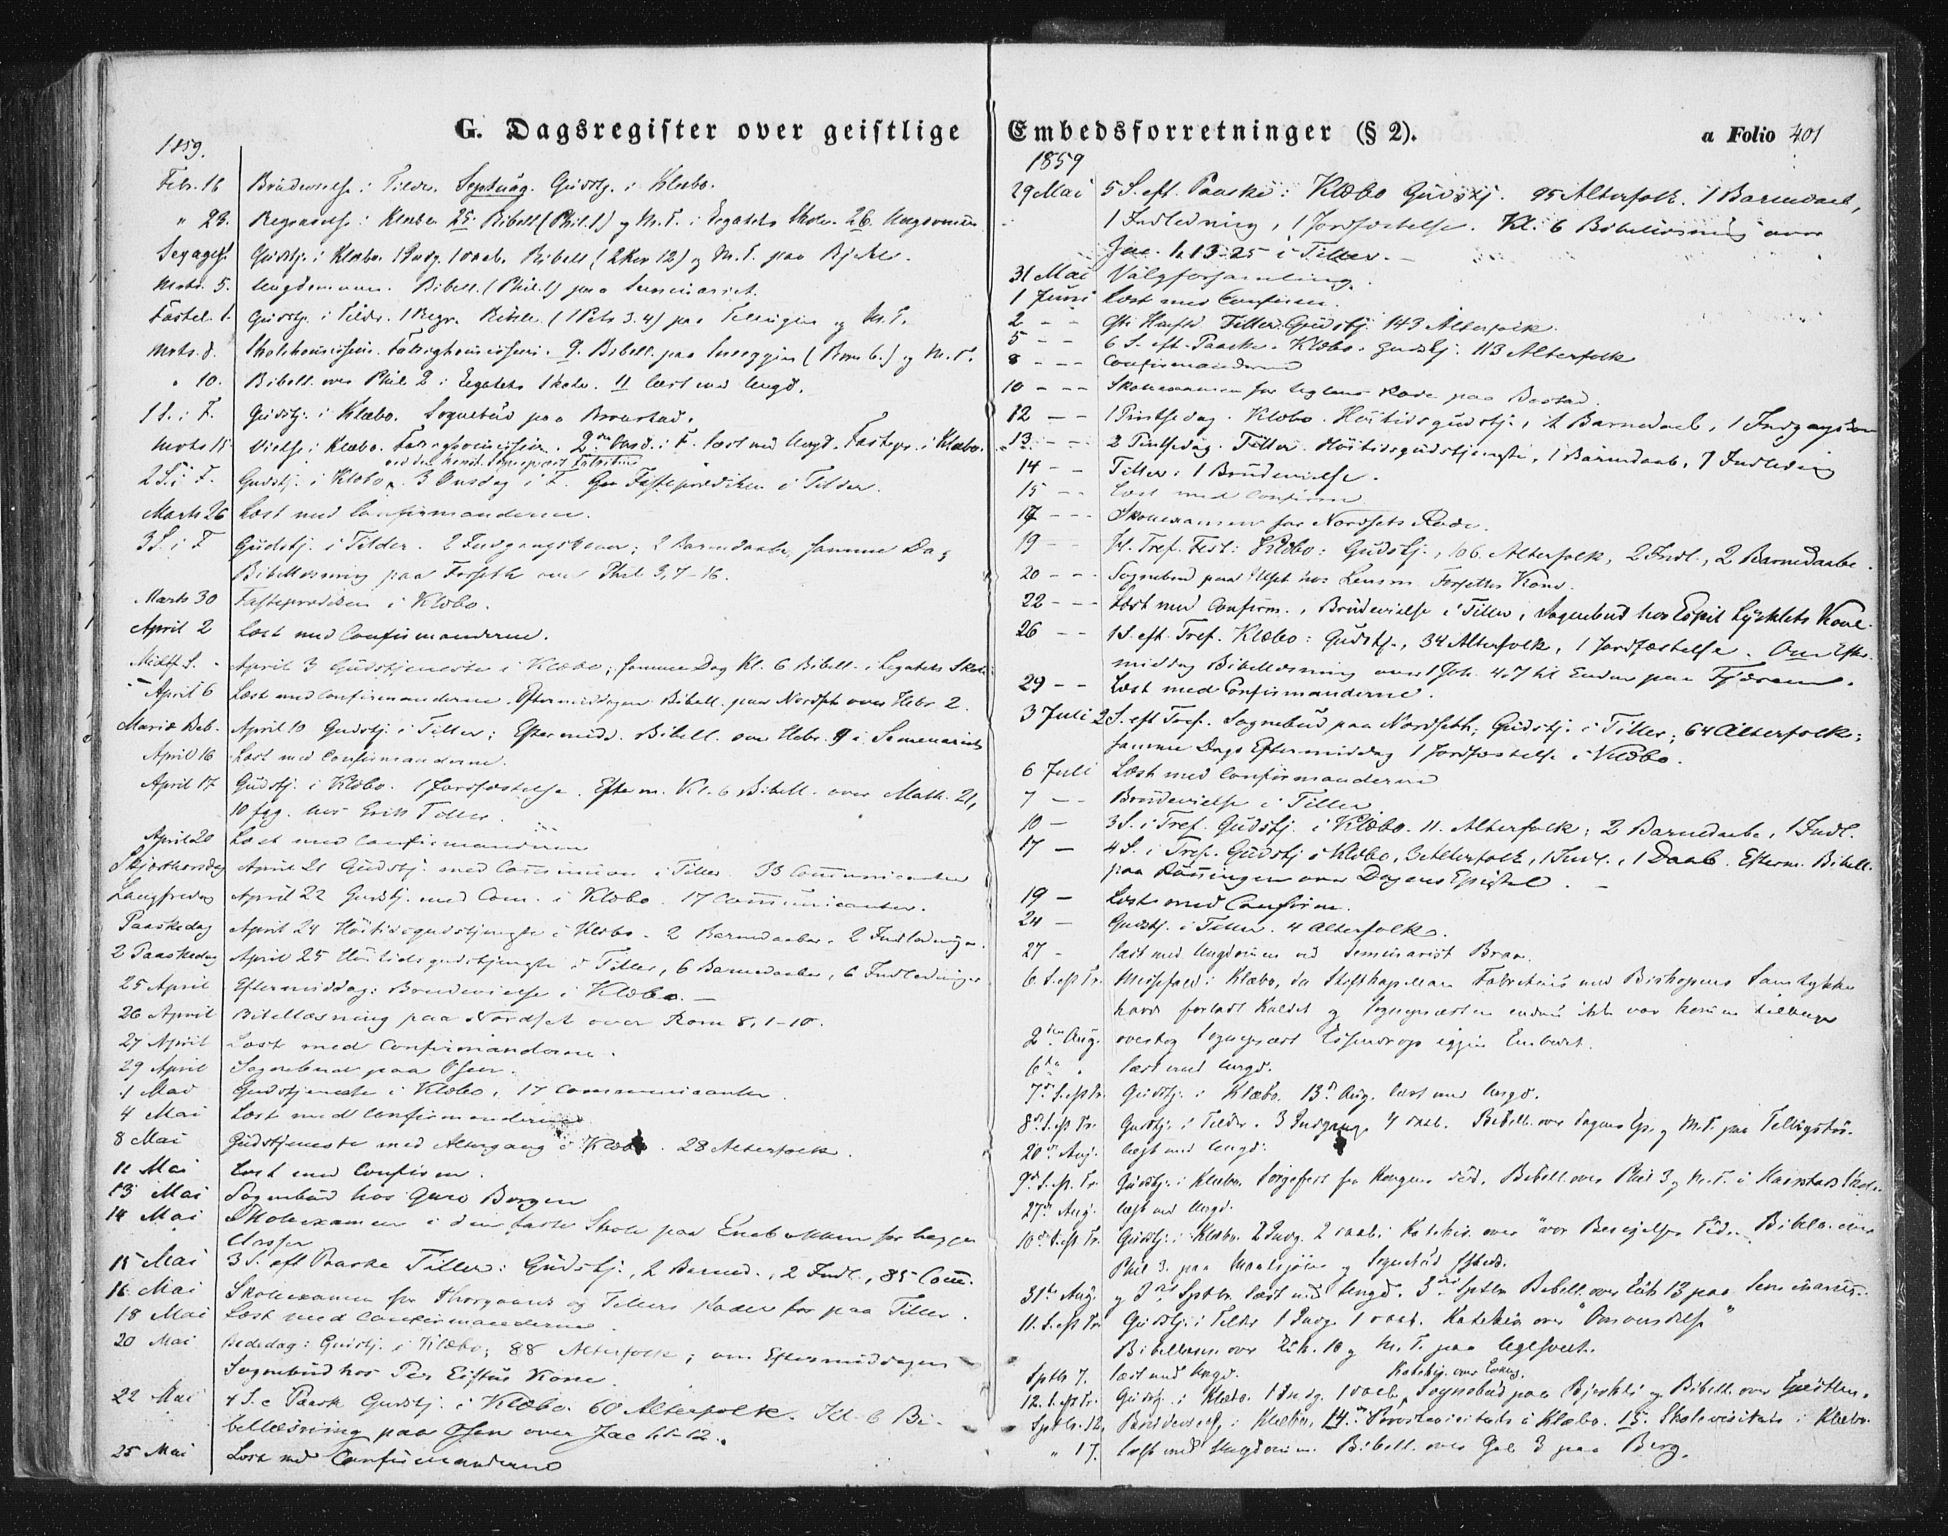 G. Dagsregister over geistlige
1859.
Febr. 16 Brudevielse i Tilder. Septuag. Gudstj. i Klæbo.
" 23. Begravelse i Klæbo 25. Bibell (Phil. 1) og M.F. i Legatets Skole. 26. Ungdommen
Sexages. Gudstj. i Klæbo 1 Indg. 1 Daab. Bibell (2 Kor 12) og M.F. paa
Marts. 5. Ungdommen. Bibell. (Phil. 1) paa Seminariet.
Fastel. S. Gudstj. i Tilder. 1 Begr. Bibell. (1 Petr 3.4) paa og M.F.
Marts. 8. Skolekommission. Fattigkommission. 9. Bibell. paa (Rom 6.) og M.F.
" 10. Bibell. over Phil 2 i Legatets Skole. 11 læst med Ungd.
1 S. i F. Gudstj. i Klæbo. Sognebud paa
Marts 15 Vielse i Klæbo. Fattigkommission. 2den Onsd. i F. læst med Ungd. Fastepr. i Klæbo.
ved den konst. Sognepræst Fabritius
2 S. i F. Gudstj. i Klæbo. 3 Onsdag i F. Fasteprædiken i Tilder.
Marts 26 Læst med Confirmanderne.
3 S. i F Gudstj. i Tilder. 2 Indgangskoner; 2 Barnedaabe, samme Dag
Bibellæsning paa Forseth over Phil 3,7-16.
Marts 30 Fasteprædiken i Klæbo.
April 2 Læst med Confirmanderne.
Midf S. April 3 Gudstjeneste i Klæbo; samme Dag Kl. 6 Bibell. i Legatets Skole
April 6 Læst med Confirmanderne. Eftermiddagen Bibell. paa Nordset over Hebr 2.
Mariæ Beb. April 10 Gudstj. i Tiller; Eftermidd. Bibell. over Hebr. 9 i Semenariet
April 16 Læst med Confirmanderne.
April 17 Gudstj. i Klæbo. 1 Jordfæstelse. Efterm. Kl. 6 Bibell. over Math. 21,
10 fgg. hos Erik Tiller.
April 20 Læst med Confirmanderne
Skjærthorsdag April 21 Gudstj. med Communion i Tiller. 33 Communicanter
Langfredag April 22 Gudstj. med Com. i Klæbo. 17 Communicanter.
Paaskedag April 24 Høitidsgudstjeneste i Klæbo. 2 Barnedaabe. 2 Indledninger.
2 Paaskedag April 25 Høitidsgudstjeneste i Tiller, 6 Barnedaabe, 6 Indledninger
25 April Eftermiddag: Brudevielse i Klæbo. —
26 April Bibellæsning paa Nordset over Rom 8, 1-10.
27 April Læst med Confirmanderne.
29 April Sognebud paa Osen.
1 Mai Gudstjeneste i Klæbo, 17 Communicanter.
4 Mai Læst med Confirmanderne
8 Mai Gudstjeneste med Altergang i Klæbo. 28 Alterfolk.
11 Mai Læst med Confirm.
13 Mai Sognebud hos Guro Borgen
14 Mai Skoleexamen i den faste Skole paa for begge
Classer
15 Mai 3 S. eft Paaske Tiller: Gudstj., 2 Barned., 2 Indl., 85 Com.
16 Mai Skoleexamen for og Tillers Roder paa Tiller.
18 Mai Læst med Confirmanderne.
20 Mai Bededag: Gudstj. i Klæbo; 88 Alterfolk; om Eftermiddagen
Sognebud hos Per Kone.
22 Mai 4 S. e Paask Gudstj. i Klæbo. 60 Alterfolk. Kl. 6 Bi-
bellæsning paa Osen over Jac 1,1-12.
25 Mai Læst med Confirmanderne
Embedsforretninger (§ 2).
a Folio 401
1859
29 Mai 5 S. eft. Paaske: Klæbo Gudstj. 95 Alterfolk. 1 Barnedaab,
1 Indledning, 1 Jordfæstelse. Kl. 6 Bibellæsning over
Jac. 1, 13-25 i Tiller. —
31 Mai Valgforsamling.
1 Juni Læst med Confirm.
2 - - Tiller. Gudstj. 143 Alterfolk.
5 - - 6 S. eft. Paaske. Klæbo. Gudstj. 113 Alterfolk
8 - - Confirmanderne
10 - - - Skoleexamen for Rode paa
12 - - 1 Pintsedag. Klæbo. Høitidsgudstj., 2 Barnedaab, 1 Indgangskone
13 - - 2 Pintsedag. Tiller. Høitidsgudstjeneste, 1 Barnedaab, 1 Indledning
14 - - Tiller: 1 Brudevielse.
15 - - Læst med Confirm
17 - - - Skoleexamen for Nordsets Rode.
19 - - Tref. Fest: Klæbo: Gudstj., 106 Alterfolk, 2 Indl., 2 Barnedaabe.
20 - - - Sognebud paa hos Lensm. Forseths Kone.
22 - - - Læst med Confirm., Brudevielse i Tiller, Sognebud hos Kone.
26 - - 1 S. eft. Tref. Klæbo: Gudstj., 34 Alterfolk, 1 Jordfæstelse. Om Efter-
middag Bibellæsning over 1 Joh. 4,7 til Enden paa
29 - - Læst med Confirmanderne.
3 Juli 2 S. eft Tref. Sognebud paa Nordseth; Gudstj. i Tiller; 64 Alterfolk;
samme Dags Eftermiddag 1 Jordfæstelse i Klæbo.
6 Juli Læst med Confirmanderne
7 - - Brudevielse i Tiller
10 - 3 S. i Tref. Gudstj. i Klæbo. 11. Alterfolk; 2 Barnedaabe, 1 Indl.
17 - 4 S. i Tref. Gudstj i Klæbo, 3 Alterfolk, 1 Indl., 1 Daab. Efterm. Bibell.
paa over Dagens Epistel. —
19 - Læst med Confirm.
24 - Gudstj. i Tiller. 4 Alterfolk.
27 - læst med Ungdommen ved Seminarist
6. S. eft Tr. Messefald i Klæbo, da Stiftskapellan Fabritius med Biskopens Samtykke
havde forladt Kaldet og Sognepræsten endnu ikke var kommen tilbage
2den Aug. overtog Sognepræst igjen Embedet.
6te " læst med Ungd.
7de S. eft Tr. Gudstj. i Klæbo. 13de Aug. læst med Ungd.
8de S. eft Tr. Gudstj. i Tilder. 3 Indgange 4 Daab. Bibell. over Dagens Ep. og M.F. paa
20de Aug. læst med Ungd.
9de S. eft. Tr. Gudstj. i Klæbo. Sørgefest for Kongens Død. Bibell. over Phil 3 og M.F. i Skole.
27de Aug. læst med Ungd.
10de S. eft Tr. Gudstj. i Klæbo. 2 Indg. 2 Daab. Katekis. over Bibell. over
Phil 3. paa og Sognebud
31te Aug. og 3die Septbr. læst med Ungd. 3die Septbr. Bibell. over Luk 13 paa Seminariet.
11. S. eft Tr. Gudstj. i Tilder 1 Indg. 1 Daab. Katekis over
Bibellæsn. over Luk. 10 og M.F. paa
Septb. 7. læst med Ungd. Katekis. over
12. S. eft Tr. Gudstj. i Klæbo. 1 Indg. 1 Daab, Sognebud paa og Bibell. over Epistlen.
Septbr. 12. Brudevielse i Klæbo, 14de Provstevisitats i Klæbo. 15. Skolevisitats i Klæbo.
" 17. læst med Ungdommen. Bibell. over Gal 3 paa Berg.